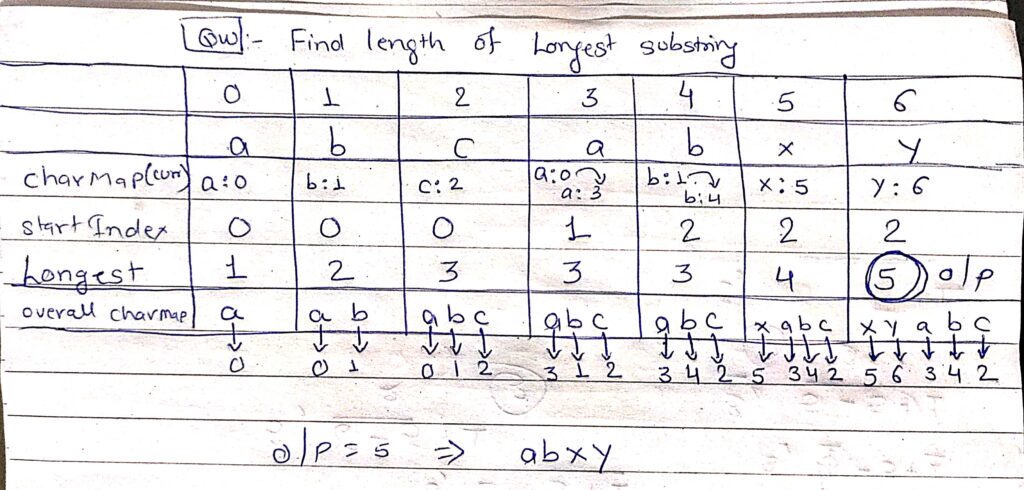 Qw :- Find length of Longest substring
0 1 2 3 4 5 6
a b c a b x y
charMap(curr) a:0 b:1 c:2 a:0 a:3 b:1 b:4 x:5 y:6
start Index 0 0 0 1 2 2 2
Longest 1 2 3 3 3 4 5 o/p
overall charmap a a b a b c a b c a b c x a b c x y a b c
0 0 1 0 1 2 3 1 2 3 4 2 5 3 4 2 5 6 3 4 2
o/p = 5 ⇒ abxy